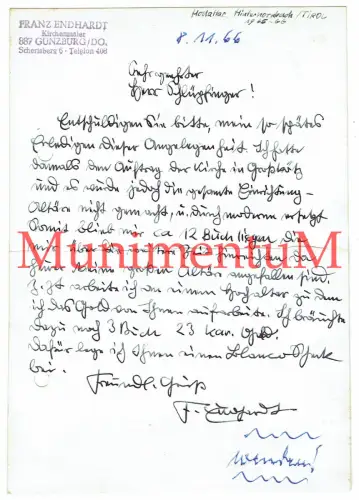 FRANZ ENDHARDT
Kirchenmaler
887 GÜNZBURG/DO.
Scherisberg 6 - Telefon 408
Hochaltar Hinterhornbach/TIROL
1965-66
8.11.66
Sehr geehrter
Herr Schlüpfinger!
Entschuldigen Sie bitte, mein so spätes
Erledigen dieser Angelegenheit. Ich hatte
damals den Auftrag der Kirche in
und es wurde jedoch die gesamte Einrichtung -
Altäre nicht gemacht, u. durch moderne ersetzt
Somit blieb mir ca 12 Buch liegen, die
MunimentuM
keine großen Altäre angefallen sind.
Jetzt arbeite ich an einem Hochaltar zu dem
ich das Gold von Ihnen aufarbeite. Ich bräuchte
dazu noch 3 Buch 23 kar. Gold.
Dafür lege ich Ihnen einen Blanco Scheck
bei.
Freundl. Gruß
F. Endhardt
wenden!